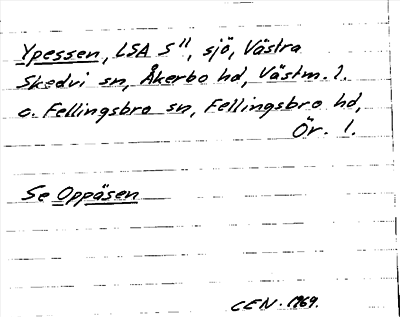 Ypessen, LSA S", sjö, Västra
Skedvi sn, Åkerbo hd, Västm. l.
o. Fellingsbro sn, Fellingsbro hd,
Ör. l.
Se Oppäsen
CEN. 1969.